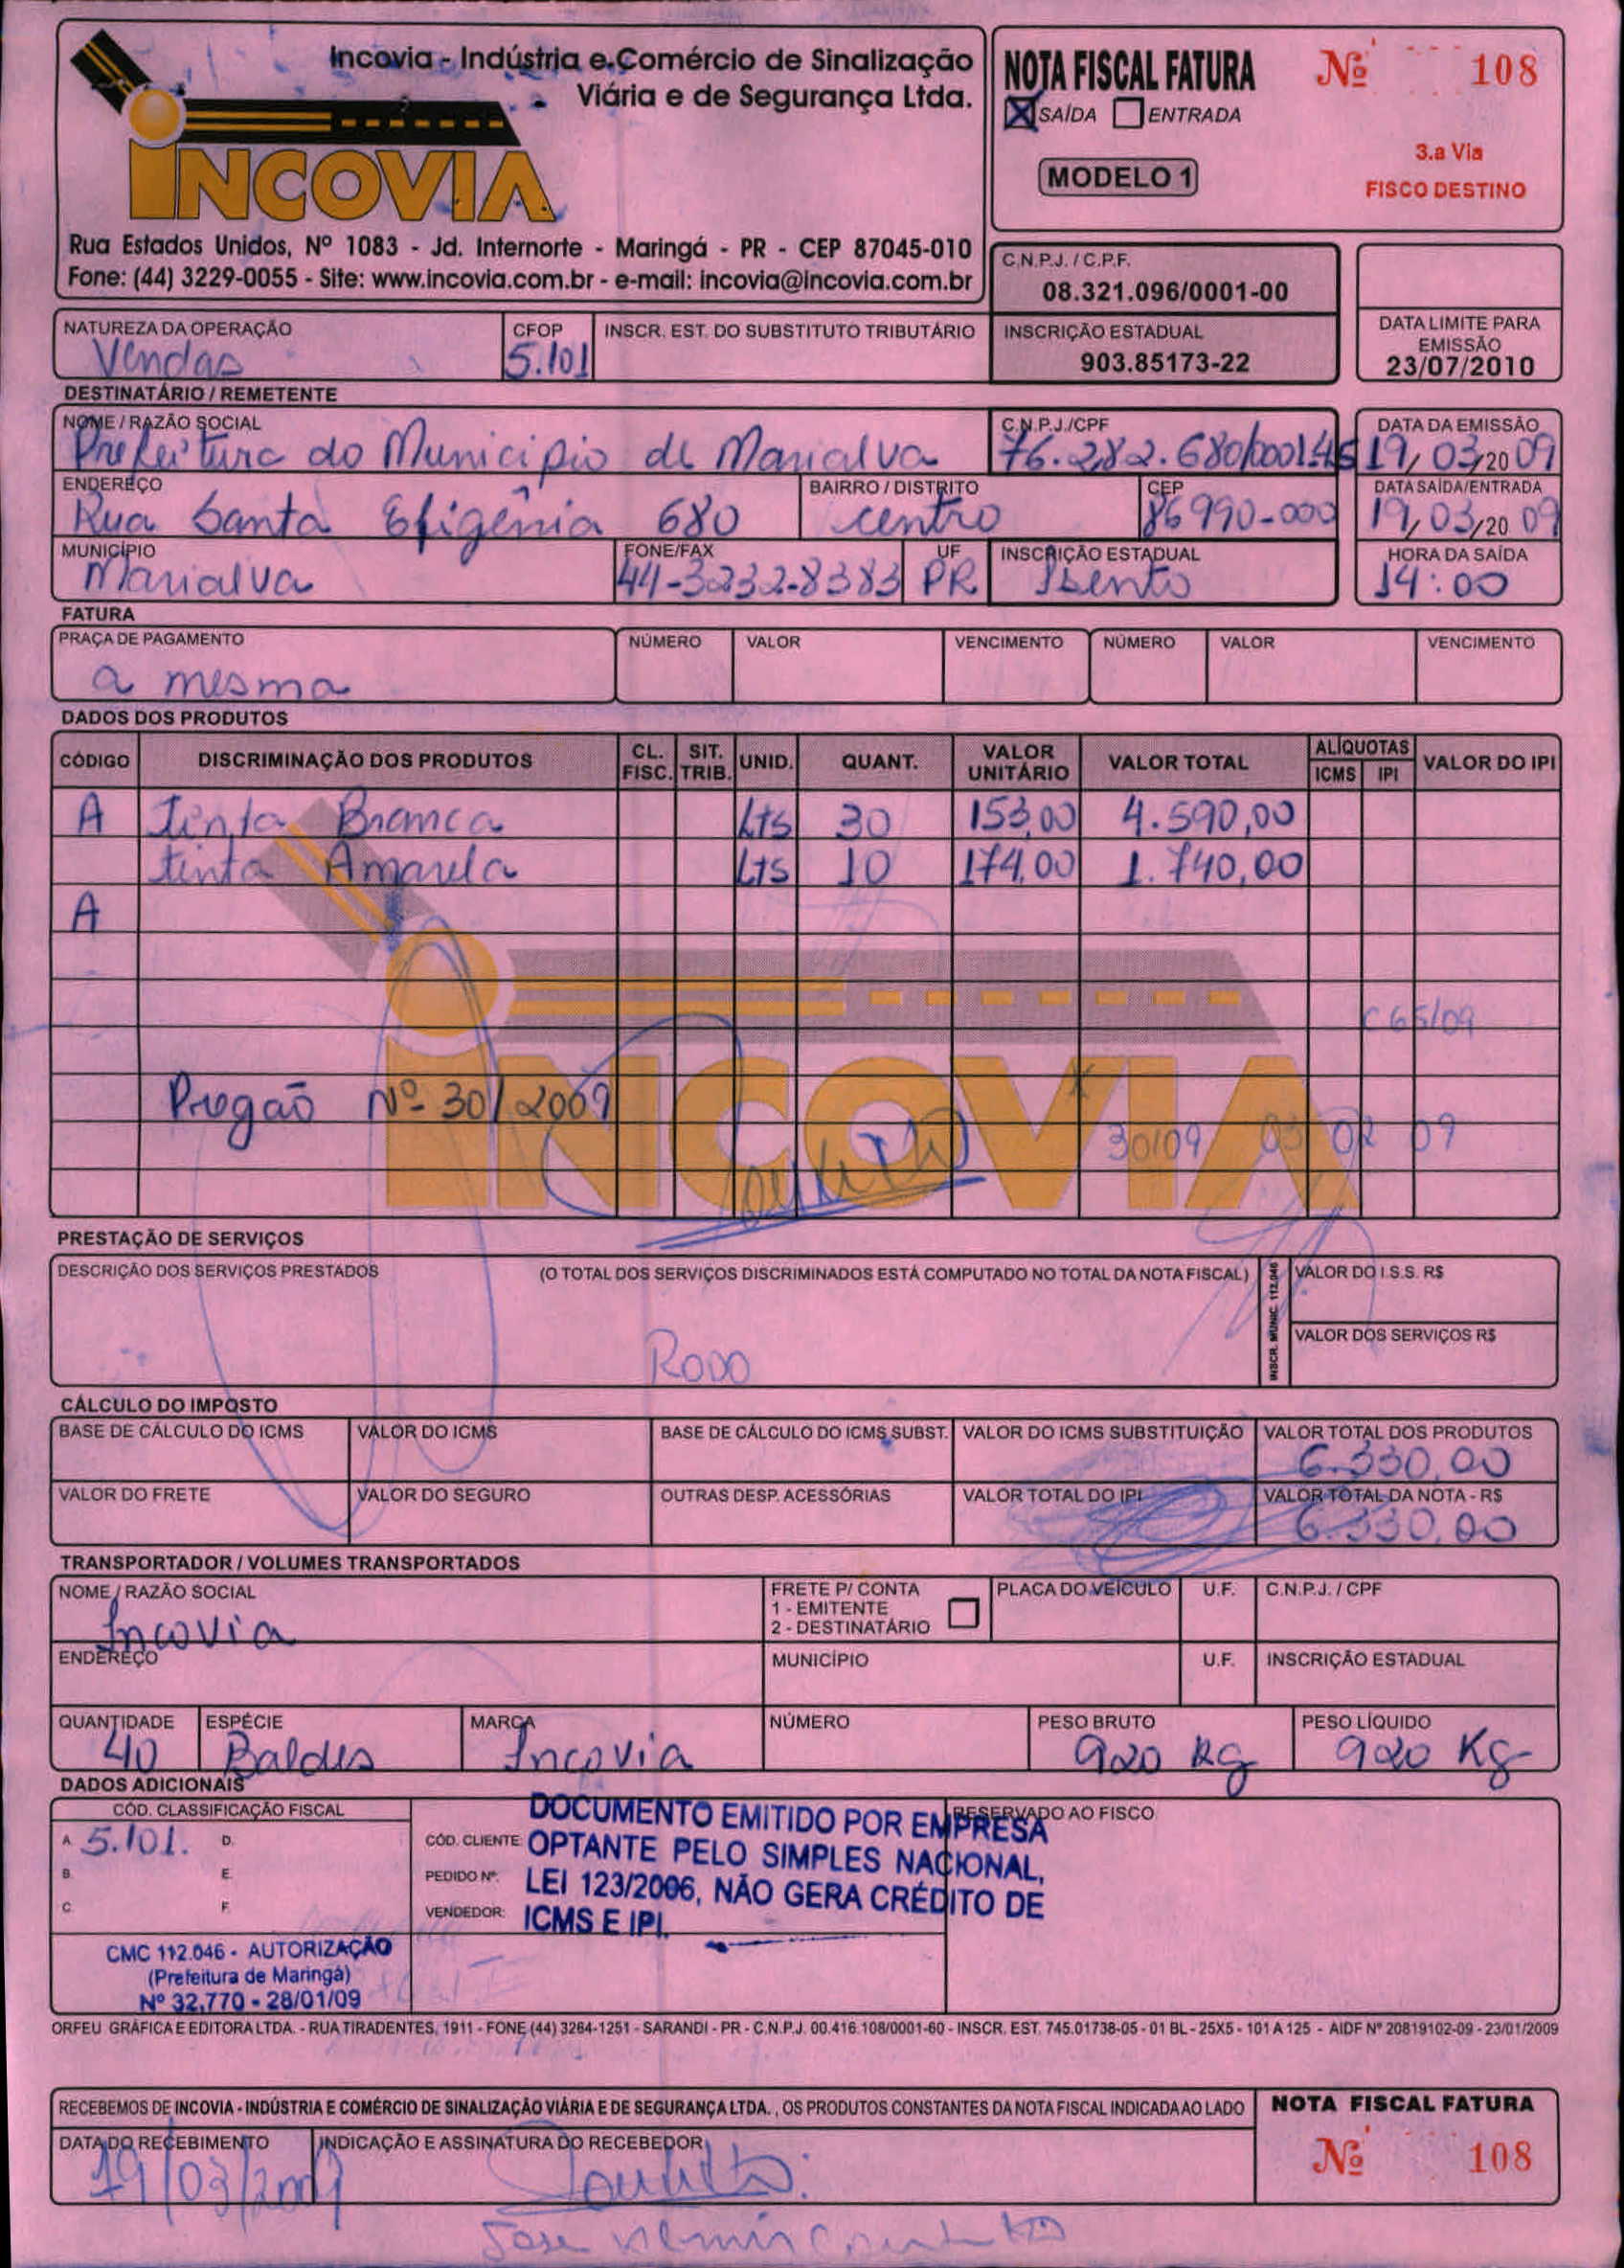 Incovia - Indústria e Comércio de Sinalização
Viária e de Segurança Ltda.
INCOVIA
Rua Estados Unidos, Nº 1083 - Jd. Internorte - Maringá - PR - CEP 87045-010
Fone: (44) 3229-0055 - Site: www.incovia.com.br - e-mail: incovia@incovia.com.br
NOTA FISCAL FATURA Nº 108
X SAÍDA ENTRADA
3.a Via
MODELO 1
FISCO DESTINO
C.N.P.J. / C.P.F.
08.321.096/0001-00
NATUREZA DA OPERAÇÃO CFOP INSCR. EST. DO SUBSTITUTO TRIBUTÁRIO INSCRIÇÃO ESTADUAL DATA LIMITE PARA EMISSÃO
Vendas 5.101 903.85173-22 23/07/2010
DESTINATÁRIO / REMETENTE
NOME / RAZÃO SOCIAL C.N.P.J./CPF DATA DA EMISSÃO
Prefeitura do Municipio de Marialva 76.282.680/0001-45 19/03/2009
ENDEREÇO BAIRRO / DISTRITO CEP DATA SAÍDA/ENTRADA
Rua Santa Efigênia 680 centro 86990-000 19/03/2009
MUNICÍPIO FONE/FAX UF INSCRIÇÃO ESTADUAL HORA DA SAÍDA
Marialva 44-3232-8383 PR Isento 14:00
FATURA
PRAÇA DE PAGAMENTO NÚMERO VALOR VENCIMENTO NÚMERO VALOR VENCIMENTO
a mesma
DADOS DOS PRODUTOS
CÓDIGO DISCRIMINAÇÃO DOS PRODUTOS CL. FISC. SIT. TRIB. UNID. QUANT. VALOR UNITÁRIO VALOR TOTAL ALÍQUOTAS ICMS IPI VALOR DO IPI
A Tinta Branca Lts 30 153,00 4.590,00
tinta Amarela Lts 10 174,00 1.740,00
A
C 65/09
Pregão Nº 30/2009
30/09 03 02 09
INCOVIA
PRESTAÇÃO DE SERVIÇOS
DESCRIÇÃO DOS SERVIÇOS PRESTADOS (O TOTAL DOS SERVIÇOS DISCRIMINADOS ESTÁ COMPUTADO NO TOTAL DA NOTA FISCAL) INSCR. MUNIC. 112.046 VALOR DO I.S.S. R$
VALOR DOS SERVIÇOS R$
CÁLCULO DO IMPOSTO
BASE DE CÁLCULO DO ICMS VALOR DO ICMS BASE DE CÁLCULO DO ICMS SUBST. VALOR DO ICMS SUBSTITUIÇÃO VALOR TOTAL DOS PRODUTOS
6.330,00
VALOR DO FRETE VALOR DO SEGURO OUTRAS DESP. ACESSÓRIAS VALOR TOTAL DO IPI VALOR TOTAL DA NOTA - R$
6.330,00
TRANSPORTADOR / VOLUMES TRANSPORTADOS
NOME / RAZÃO SOCIAL FRETE P/ CONTA 1 - EMITENTE 2 - DESTINATÁRIO PLACA DO VEÍCULO U.F. C.N.P.J. / CPF
Incovia
ENDEREÇO MUNICÍPIO U.F. INSCRIÇÃO ESTADUAL
QUANTIDADE ESPÉCIE MARCA NÚMERO PESO BRUTO PESO LÍQUIDO
40 Baldes Incovia 920 Kg 920 Kg
DADOS ADICIONAIS
CÓD. CLASSIFICAÇÃO FISCAL
A. 5.101. D.
B. E.
C. F.
CÓD. CLIENTE:
PEDIDO Nº:
VENDEDOR:
DOCUMENTO EMITIDO POR EMPRESA
OPTANTE PELO SIMPLES NACIONAL,
LEI 123/2006, NÃO GERA CRÉDITO DE
ICMS E IPI.
RESERVADO AO FISCO
CMC 112.046 - AUTORIZAÇÃO
(Prefeitura de Maringá)
Nº 32.770 - 28/01/09
ORFEU GRÁFICA E EDITORA LTDA. - RUA TIRADENTES, 1911 - FONE (44) 3264-1251 - SARANDI - PR - C.N.P.J. 00.416.108/0001-60 - INSCR. EST. 745.01738-05 - 01 BL - 25X5 - 101 A 125 - AIDF Nº 20819102-09 - 23/01/2009
RECEBEMOS DE INCOVIA - INDÚSTRIA E COMÉRCIO DE SINALIZAÇÃO VIÁRIA E DE SEGURANÇA LTDA., OS PRODUTOS CONSTANTES DA NOTA FISCAL INDICADA AO LADO
NOTA FISCAL FATURA
DATA DO RECEBIMENTO INDICAÇÃO E ASSINATURA DO RECEBEDOR
19/03/2009
Nº 108